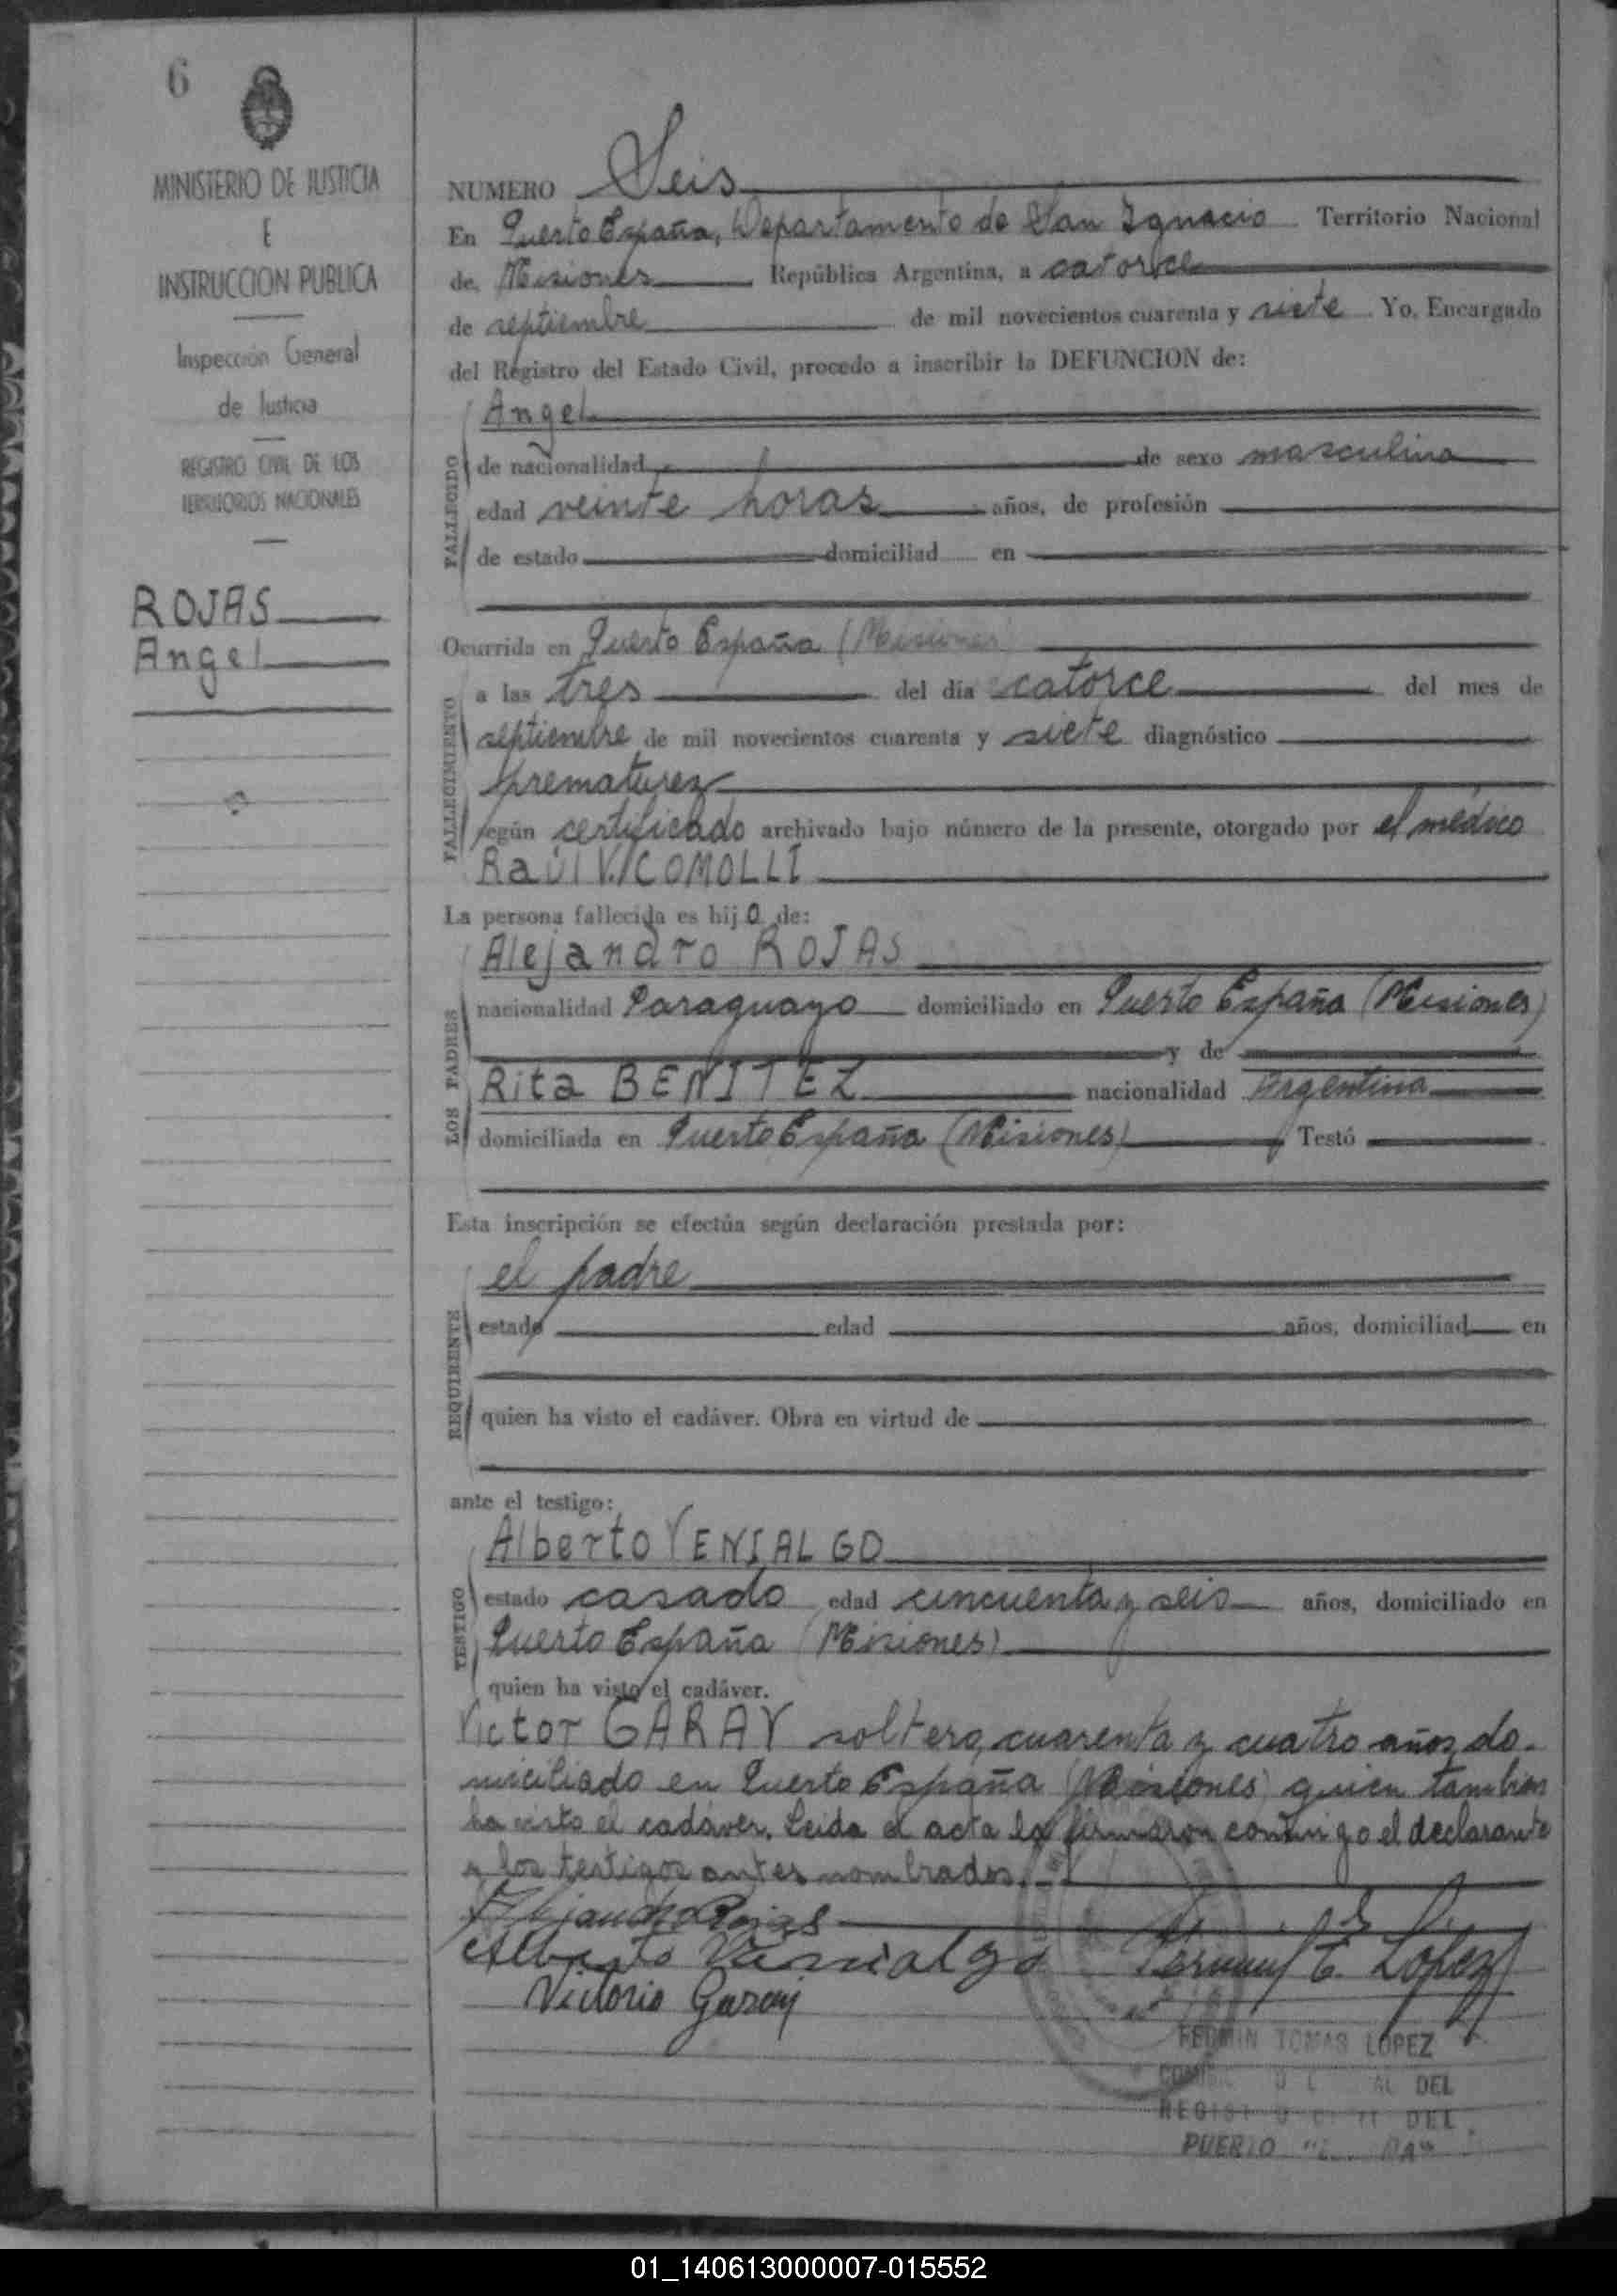 6
MINISTERIO DE JUSTICIA
E
INSTRUCCION PUBLICA
Inspección General
de Justicia
REGISTRO CIVIL DE LOS
TERRITORIOS NACIONALES
ROJAS
Angel
NUMERO Seis
En Puerto España, Departamento de San Ignacio Territorio Nacional
de Misiones República Argentina, a catorce
de septiembre de mil novecientos cuarenta y siete Yo, Encargado
del Registro del Estado Civil, procedo a inscribir la DEFUNCION de:
FALLECIDO
Angel
de nacionalidad de sexo masculino
edad veinte horas años, de profesión
de estado domiciliad en
Ocurrida en Puerto España (Misiones)
FALLECIMIENTO
a las tres del día catorce del mes de
septiembre de mil novecientos cuarenta y siete diagnóstico
prematurez
según certificado archivado bajo número de la presente, otorgado por el médico
Raúl V. COMOLLI
La persona fallecida es hijo de:
LOS PADRES
Alejandro ROJAS
nacionalidad Paraguayo domiciliado en Puerto España (Misiones)
y de
Rita BENITEZ nacionalidad Argentina
domiciliada en Puerto España (Misiones) Testó
Esta inscripción se efectúa según declaración prestada por:
REQUIRENTE
el padre
estado edad años, domiciliad en
quien ha visto el cadáver. Obra en virtud de
ante el testigo:
TESTIGO
Alberto VENIALGO
estado casado edad cincuenta y seis años, domiciliado en
Puerto España (Misiones)
quien ha visto el cadáver.
Victor GARAY soltero, cuarenta y cuatro años, do-
miciliado en Puerto España (Misiones) quien tambien
ha visto el cadáver. Leida el acta la firmaron conmigo el declarante
y los testigos antes nombrados.
Alejandro Rojas
Alberto Venialgo Fermin T. Lopez
Victorio Garay
FERMIN TOMAS LOPEZ
DEL
DEL
PUERTO
01_140613000007-015552